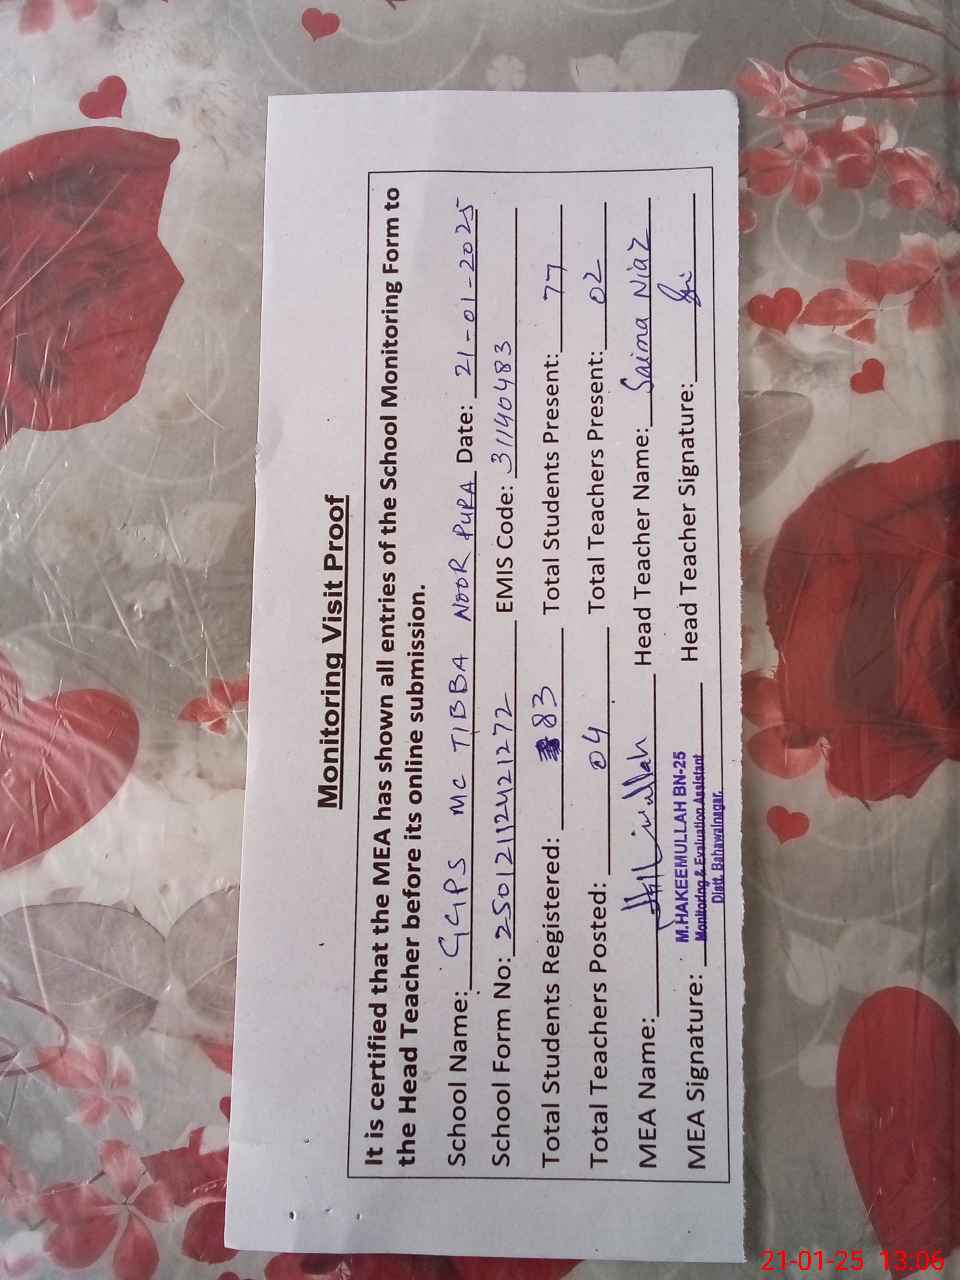 Monitoring Visit Proof
It is certified that the MEA has shown all entries of the School Monitoring Form to
the Head Teacher before its online submission.
School Name: GGPS MC TIBBA NOOR PURA Date: 21-01-2025
School Form No: 2501211242121272 EMIS Code: 31140483
Total Students Registered: 83 Total Students Present: 77
Total Teachers Posted: 04 Total Teachers Present: 02
MEA Name: Head Teacher Name: Saima Niaz
M.HAKEEMULLAH BN-25
MEA Signature: Monitoring & Evaluation Assistant Head Teacher Signature:
Distt. Bahawalnagar.
21-01-25 13:06